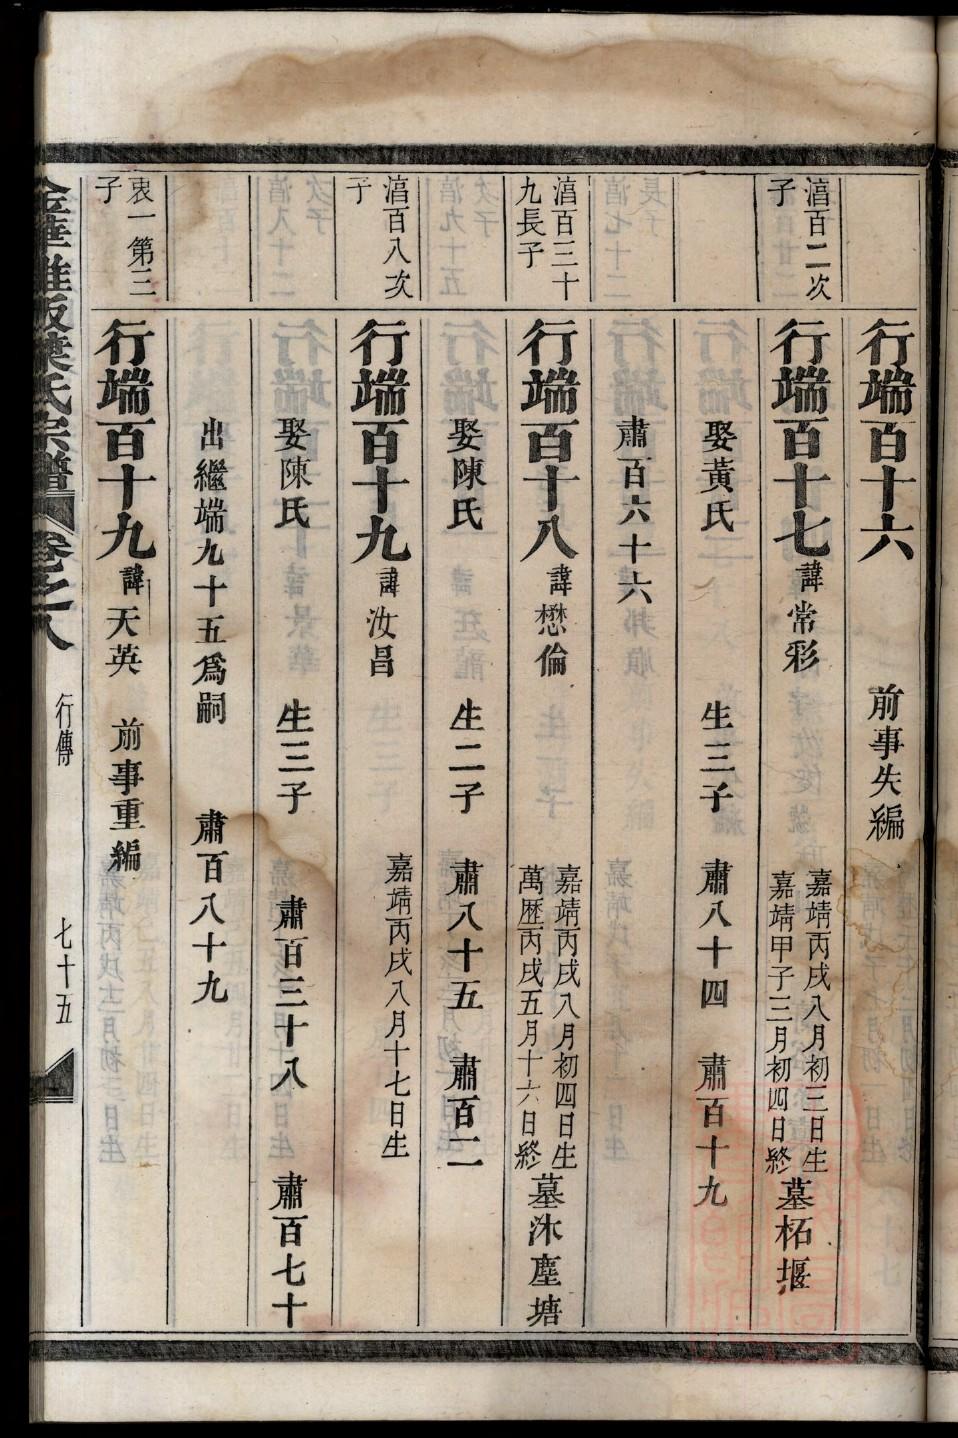 行端百十六 前事失編
湻百二次子
行端百十七 諱常彩 嘉靖丙戌八月初三日生 嘉靖甲子三月初四日終 墓柘堰
娶黃氏 生三子 肅八十四 肅百十九
肅百六十六
湻百三十九長子
行端百十八 諱懋倫 嘉靖丙戌八月初四日生 萬歷丙戌五月十六日終 墓沐塵塘
娶陳氏 生二子 肅八十五 肅百二
湻百八次子
行端百十九 諱汝昌 嘉靖丙戌八月十七日生
娶陳氏 生三子 肅百三十八 肅百七十
出繼端九十五爲嗣 肅百八十九
衷一第三子
行端百十九 諱天英 前事重編
氏宗譜 卷之八 行傳 七十五